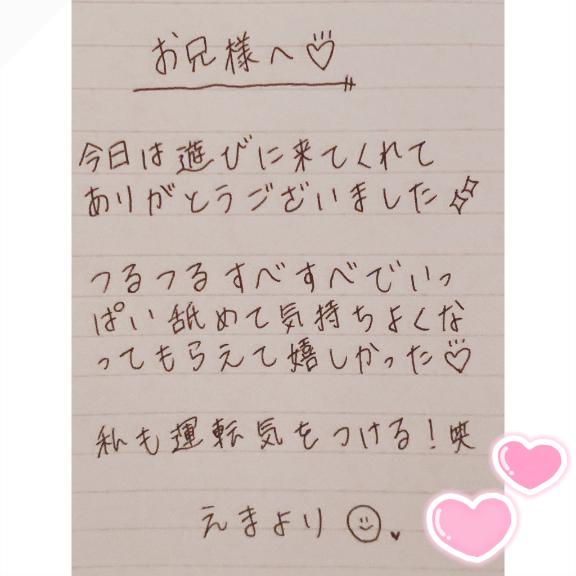 お兄様へ♡
今日は遊びに来てくれて
ありがとうございました✨
つるつるすべすべでいっ
ぱい舐めて気持ちよくな
ってもらえて嬉しかった♡
私も運転気をつける！笑
えまより☺♥